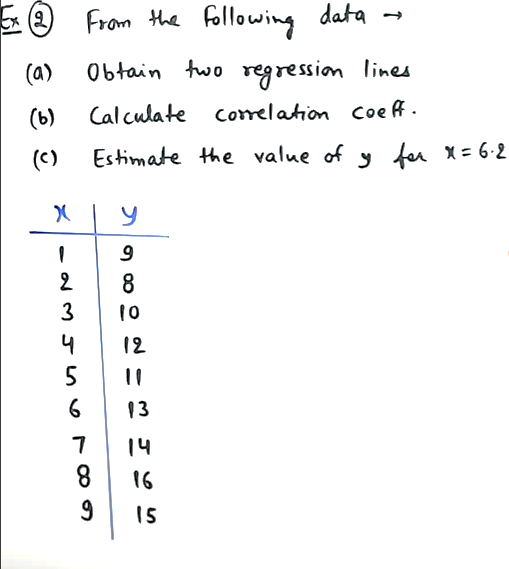 Ex 2 From the following data →
(a) Obtain two regression lines
(b) Calculate correlation coeff.
(c) Estimate the value of y for x = 6.2
x | y
1 9
2 8
3 10
4 12
5 11
6 13
7 14
8 16
9 15